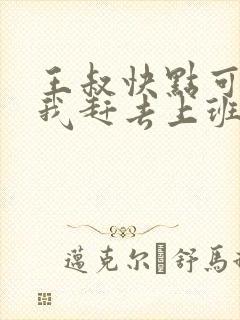 王叔快點可
我赶去上班
邁克尔舒馬